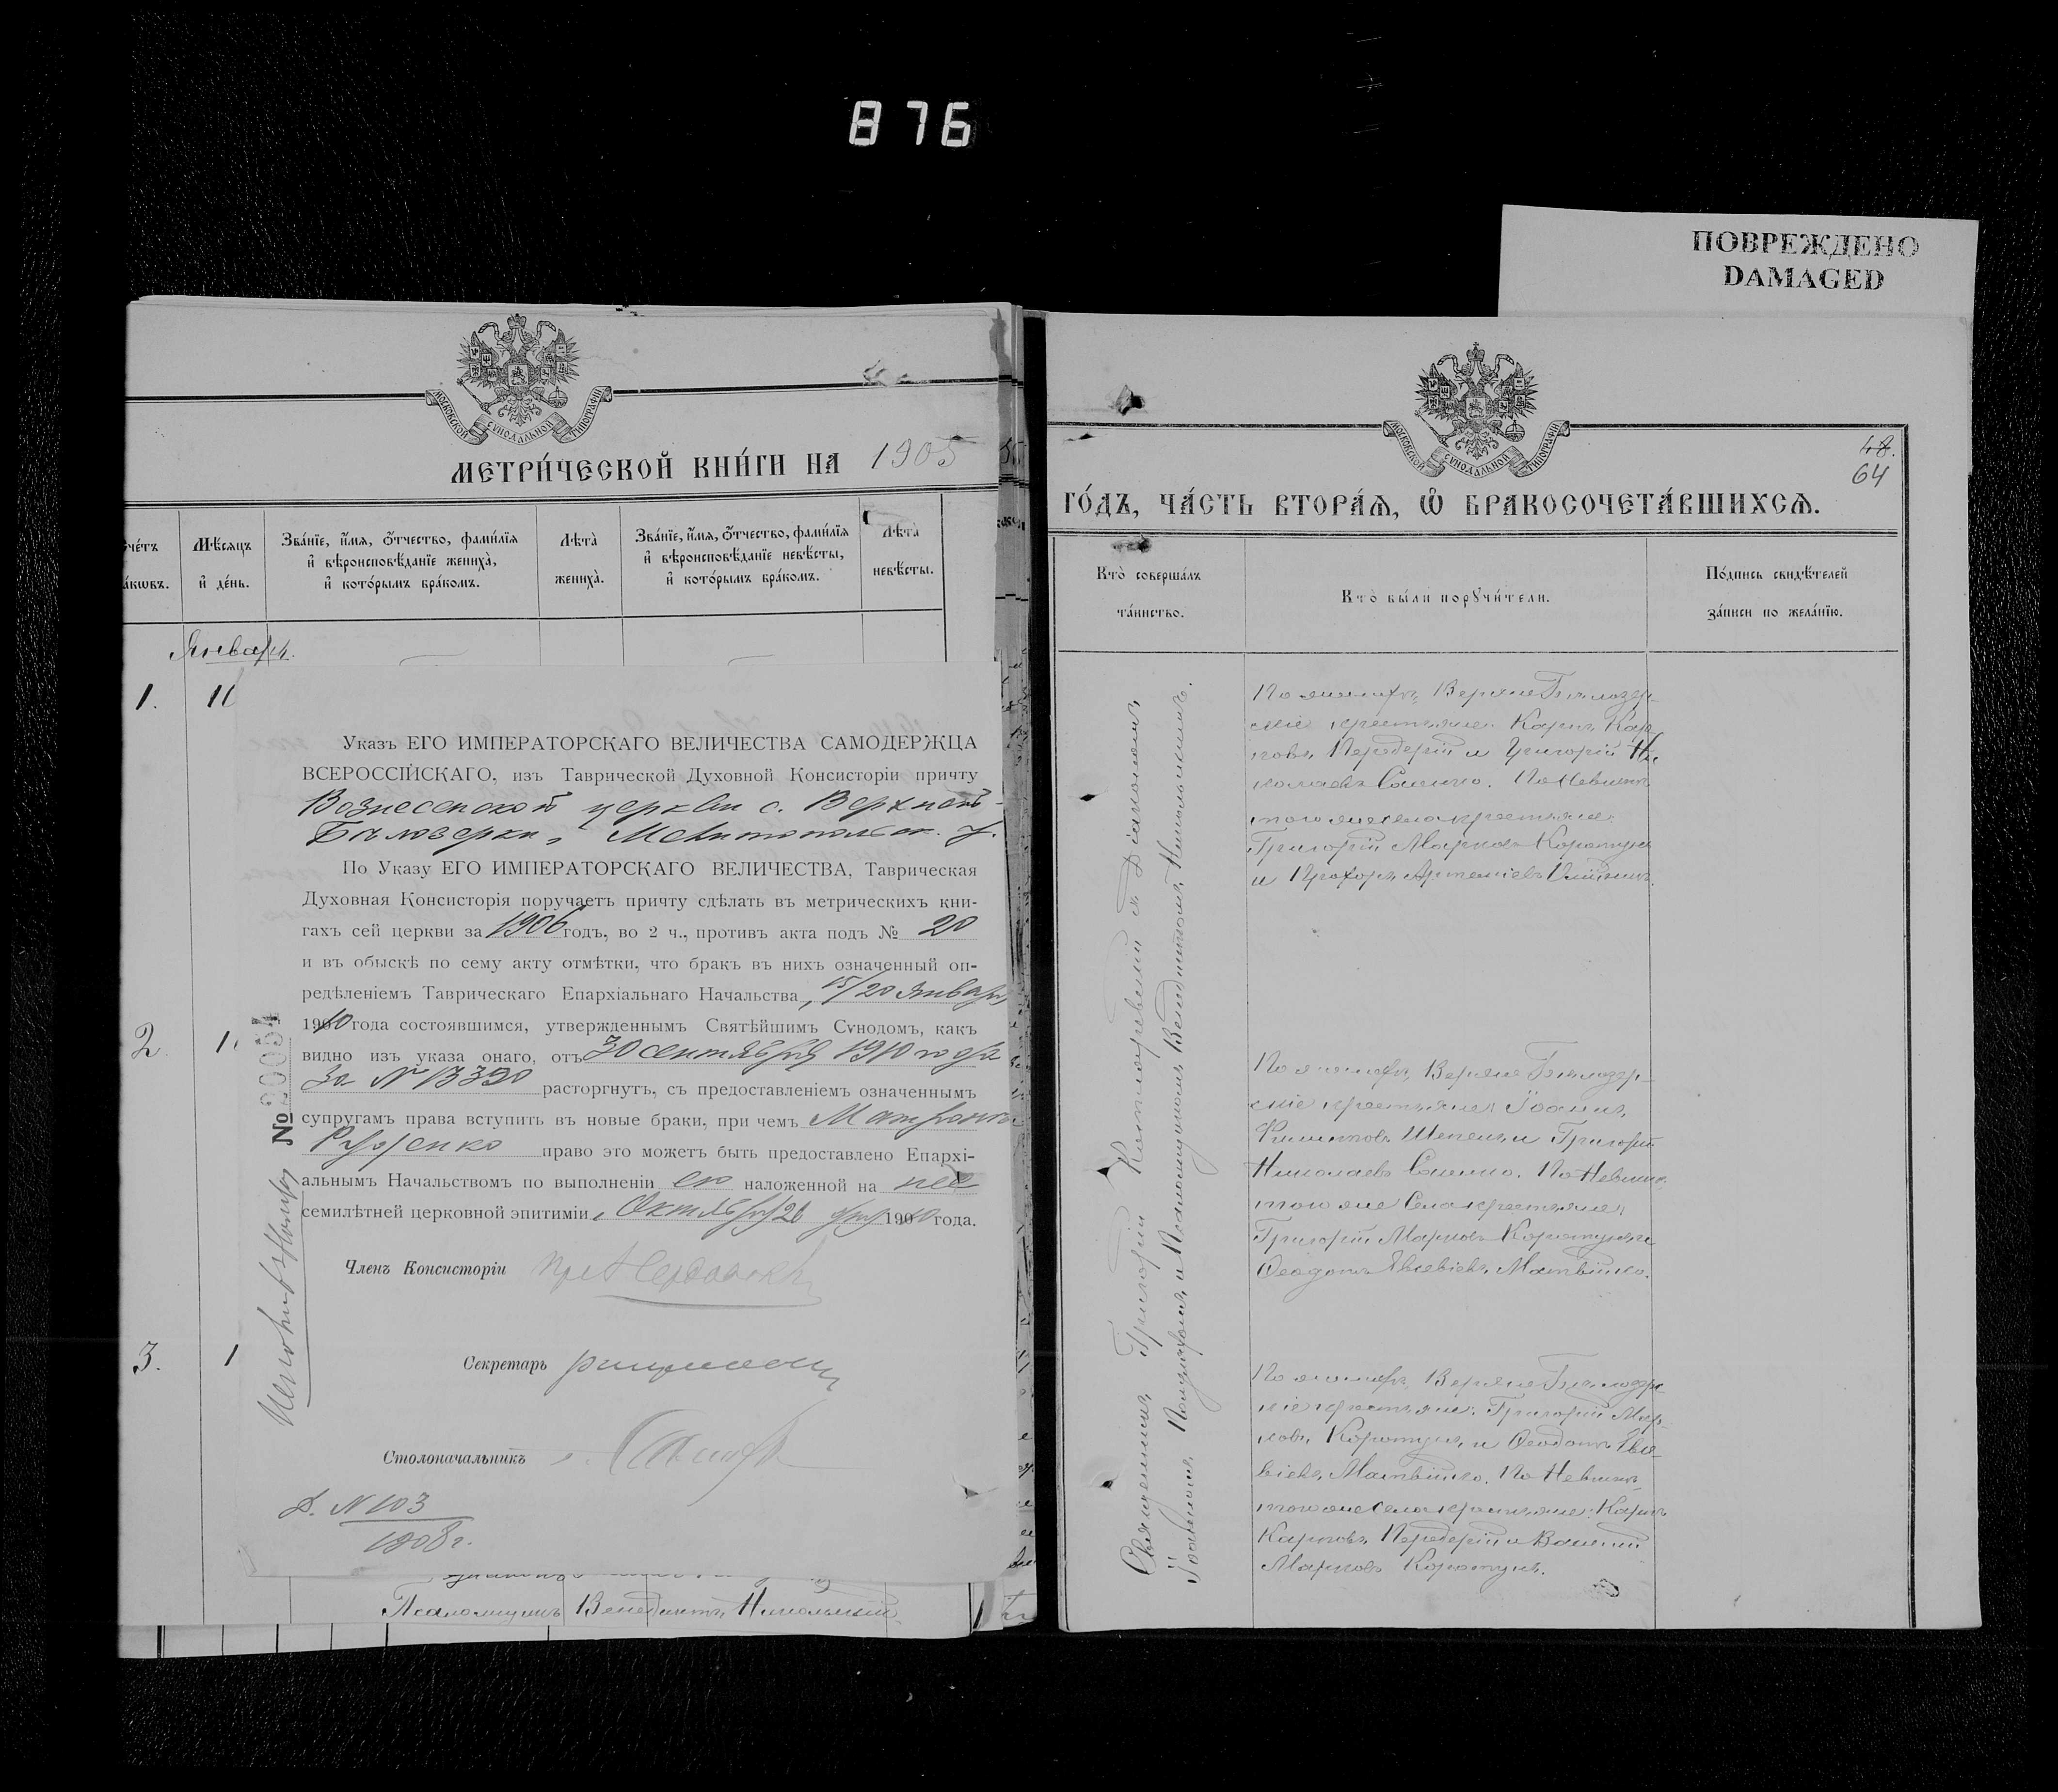 876
ПОВРЕЖДЕНО
DAMAGED
МОСКОВСКОЙ СѴНОДАЛЬНОЙ ТИПОГРАФІИ
МЕТРИ́ЧЕСКОЙ КНИ́ГИ НА 1905
счéтъ
áкѡвъ.
Мѣ́сяцъ
и҆ дéнь.
Звáнїе, и҆́мя, ѻ҆́тчество, фами́лїя
и҆ вѣроисповѣ́данїе женихà,
и҆ котóрымъ брáкомъ.
Лѣтà
женихà.
Звáнїе, и҆́мя, ѻ҆́тчество, фами́лїя
и҆ вѣроисповѣ́данїе невѣ́сты,
и҆ котóрымъ брáкомъ.
Лѣтà
невѣ́сты.
Январь.
1.
2.
3.
Указъ ЕГО ИМПЕРАТОРСКАГО ВЕЛИЧЕСТВА САМОДЕРЖЦА
ВСЕРОССІЙСКАГО, изъ Таврической Духовной Консисторіи причту
Вознесенской церкви с. Верхней-
Бѣлозерки, Мелитопольск. у.
По Указу ЕГО ИМПЕРАТОРСКАГО ВЕЛИЧЕСТВА, Таврическая
Духовная Консисторія поручаетъ причту сдѣлать въ метрическихъ кни-
гахъ сей церкви за 1906 годъ, во 2 ч., противъ акта подъ № 20
и въ обыскѣ по сему акту отмѣтки, что бракъ въ нихъ означенный оп-
редѣленіемъ Таврическаго Епархіальнаго Начальства, 15/20 Января
1910 года состоявшимся, утвержденнымъ Святѣйшимъ Сѵнодомъ, какъ
видно изъ указа онаго, отъ 30 сентября 1910 года
за № 13390 расторгнутъ, съ предоставленіемъ означеннымъ
супругамъ права вступить въ новые браки, при чемъ
право это можетъ быть предоставлено Епархі-
альнымъ Начальствомъ по выполненіи ею наложенной на нее
семилѣтней церковной эпитиміи, Октября 26 дня 1910 года.
Членъ Консисторіи
Секретарь
Столоначальникъ
Д. № 103
1908 г.
№ 20054
Псаломщикъ Венедиктъ Никольскій
МОСКОВСКОЙ СѴНОДАЛЬНОЙ ТИПОГРАФІИ
48.
64
ГÓДЪ, ЧА́СТЬ ВТОРА́Я, Ѡ҆ БРАКОСОЧЕТА́ВШИХСЯ.
Ктò совершáлъ
тáинство.
Ктò бы́ли порꙋчи́тели.
Пóдпись свидѣ́телей
зáписи по желáнїю.
Священникъ Григорій Котляревскій съ Діакономъ
Іоанномъ и Псаломщикомъ Венедиктомъ Никольскимъ.
По женихѣ, Верхне Бѣлозер-
скіе крестьяне: Карпъ Кар-
повъ Передерій и Григорій Ни-
колаевъ Сащко. По Невѣстѣ
того же села крестьяне:
Григорій Марковъ Коротунъ
По женихѣ, Верхне Бѣлозер-
скіе крестьяне: Іоаннъ
Филипповъ Шепель и Григорій
Николаевъ Сащко. По Невѣстѣ
того же Села крестьяне:
Григорій Марковъ Коротунъ и
Ѳеодотъ Матвійко.
По женихѣ, Верхне Бѣлозер-
скіе крестьяне: Григорій Мар-
ковъ Коротунъ и Ѳеодотъ
Матвійко. По Невѣстѣ
того же села крестьяне: Карпъ
Карповъ Передерій и Василій
Марковъ Коротунъ.